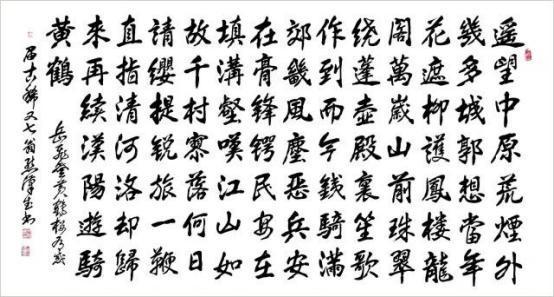 遥望中原荒煙外
幾多城郭想當年
花遮柳護鳳樓龍
閣萬歲山前珠翠
绕蓬壺殿裏笙歌
作到而今鐵騎滿
郊畿風塵惡兵安
在膏鋒锷民安在
填溝壑嘆江山如
故千村寥落何日
請纓提锐旅一鞭
直指清河洛却歸
來再續漢陽遊騎
黄鶴
岳飛登黄鶴樓有感
屆古稀又七翁